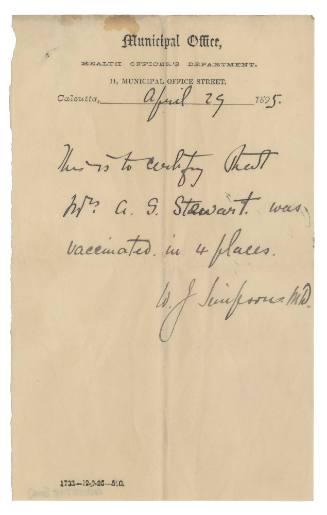 Municipal Office,
HEALTH OFFICER'S DEPARTMENT.
11, MUNICIPAL OFFICE STREET.
Calcutta, April 29 1895.
This is to certify that
Mrs A. G. Stewart was
vaccinated in 4 places.
W. J Simpson M.D.